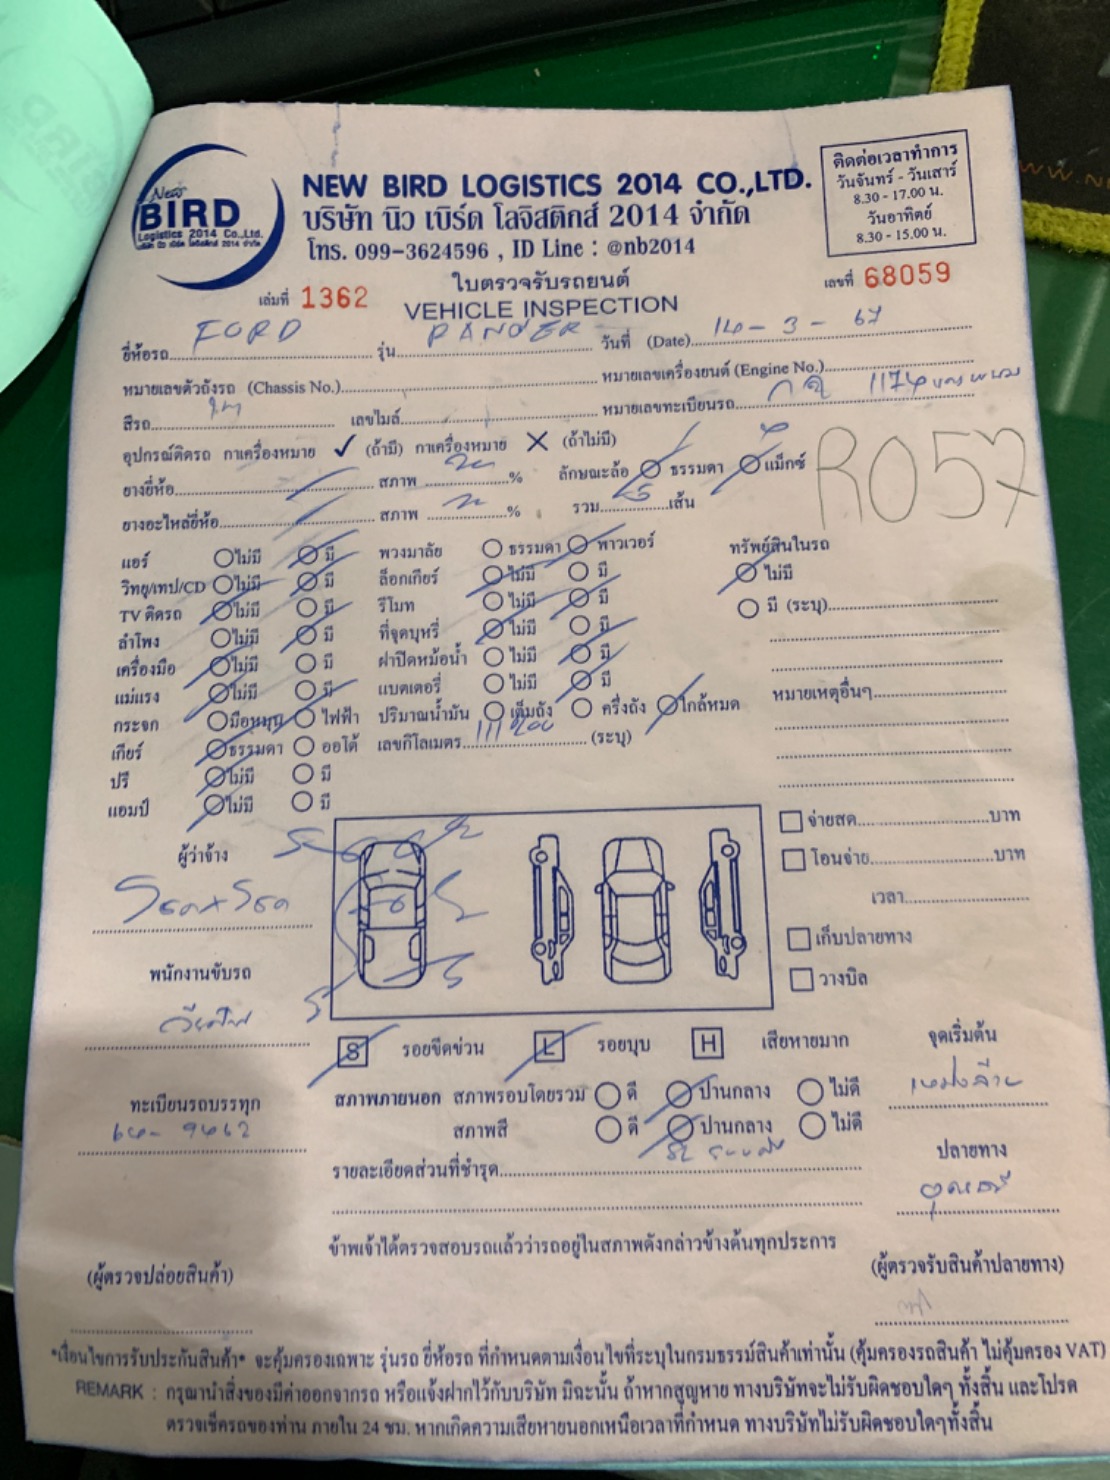 New
BIRD
Logistics 2014 Co.,Ltd.
บริษัท นิว เบิร์ด โลจิสติกส์ 2014 จำกัด
NEW BIRD LOGISTICS 2014 CO.,LTD.
บริษัท นิว เบิร์ด โลจิสติกส์ 2014 จำกัด
โทร. 099-3624596 , ID Line : @nb2014
ติดต่อเวลาทำการ
วันจันทร์ - วันเสาร์
8.30 - 17.00 น.
วันอาทิตย์
8.30 - 15.00 น.
ใบตรวจรับรถยนต์
เล่มที่ 1362 VEHICLE INSPECTION เลขที่ 68059
ยี่ห้อรถ FORD รุ่น RANGER วันที่ (Date) 14-3-67
หมายเลขตัวถังรถ (Chassis No.) หมายเลขเครื่องยนต์ (Engine No.)
สีรถ เลขไมล์ หมายเลขทะเบียนรถ 1174
อุปกรณ์ติดรถ กาเครื่องหมาย ✓ (ถ้ามี) กาเครื่องหมาย X (ถ้าไม่มี)
ยางยี่ห้อ สภาพ % ลักษณะล้อ ธรรมดา แม็กซ์
R057
ยางอะไหล่ยี่ห้อ สภาพ % รวม 5 เส้น
แอร์ ไม่มี มี พวงมาลัย ธรรมดา พาวเวอร์ ทรัพย์สินในรถ
วิทยุ/เทป/CD ไม่มี มี ล็อกเกียร์ ไม่มี มี ไม่มี
TV ติดรถ ไม่มี มี รีโมท ไม่มี มี มี (ระบุ)
ลำโพง ไม่มี มี ที่จุดบุหรี่ ไม่มี มี
เครื่องมือ ไม่มี มี ฝาปิดหม้อน้ำ ไม่มี มี
แม่แรง ไม่มี มี แบตเตอรี่ ไม่มี มี หมายเหตุอื่นๆ
กระจก มือหมุน ไฟฟ้า ปริมาณน้ำมัน เต็มถัง ครึ่งถัง ใกล้หมด
เกียร์ ธรรมดา ออโต้ เลขกิโลเมตร 111200 (ระบุ)
ปรี ไม่มี มี
แอมป์ ไม่มี มี
ผู้ว่าจ้าง
จ่ายสด บาท
โอนจ่าย บาท
เวลา
เก็บปลายทาง
วางบิล
พนักงานขับรถ
S รอยขีดข่วน L รอยบุบ H เสียหายมาก จุดเริ่มต้น
สภาพภายนอก สภาพรอบโดยรวม ดี ปานกลาง ไม่ดี
ทะเบียนรถบรรทุก สภาพสี ดี ปานกลาง ไม่ดี
64-9462
รายละเอียดส่วนที่ชำรุด ปลายทาง
ข้าพเจ้าได้ตรวจสอบรถแล้วว่ารถอยู่ในสภาพดังกล่าวข้างต้นทุกประการ
(ผู้ตรวจปล่อยสินค้า) (ผู้ตรวจรับสินค้าปลายทาง)
*เงื่อนไขการรับประกันสินค้า* จะคุ้มครองเฉพาะ รุ่นรถ ยี่ห้อรถ ที่กำหนดตามเงื่อนไขที่ระบุในกรมธรรม์สินค้าเท่านั้น (คุ้มครองรถสินค้า ไม่คุ้มครอง VAT)
REMARK : กรุณานำสิ่งของมีค่าออกจากรถ หรือแจ้งฝากไว้กับบริษัท มิฉะนั้น ถ้าหากสูญหาย ทางบริษัทจะไม่รับผิดชอบใดๆ ทั้งสิ้น และโปรด
ตรวจเช็ครถของท่าน ภายใน 24 ชม. หากเกิดความเสียหายนอกเหนือเวลาที่กำหนด ทางบริษัทไม่รับผิดชอบใดๆทั้งสิ้น